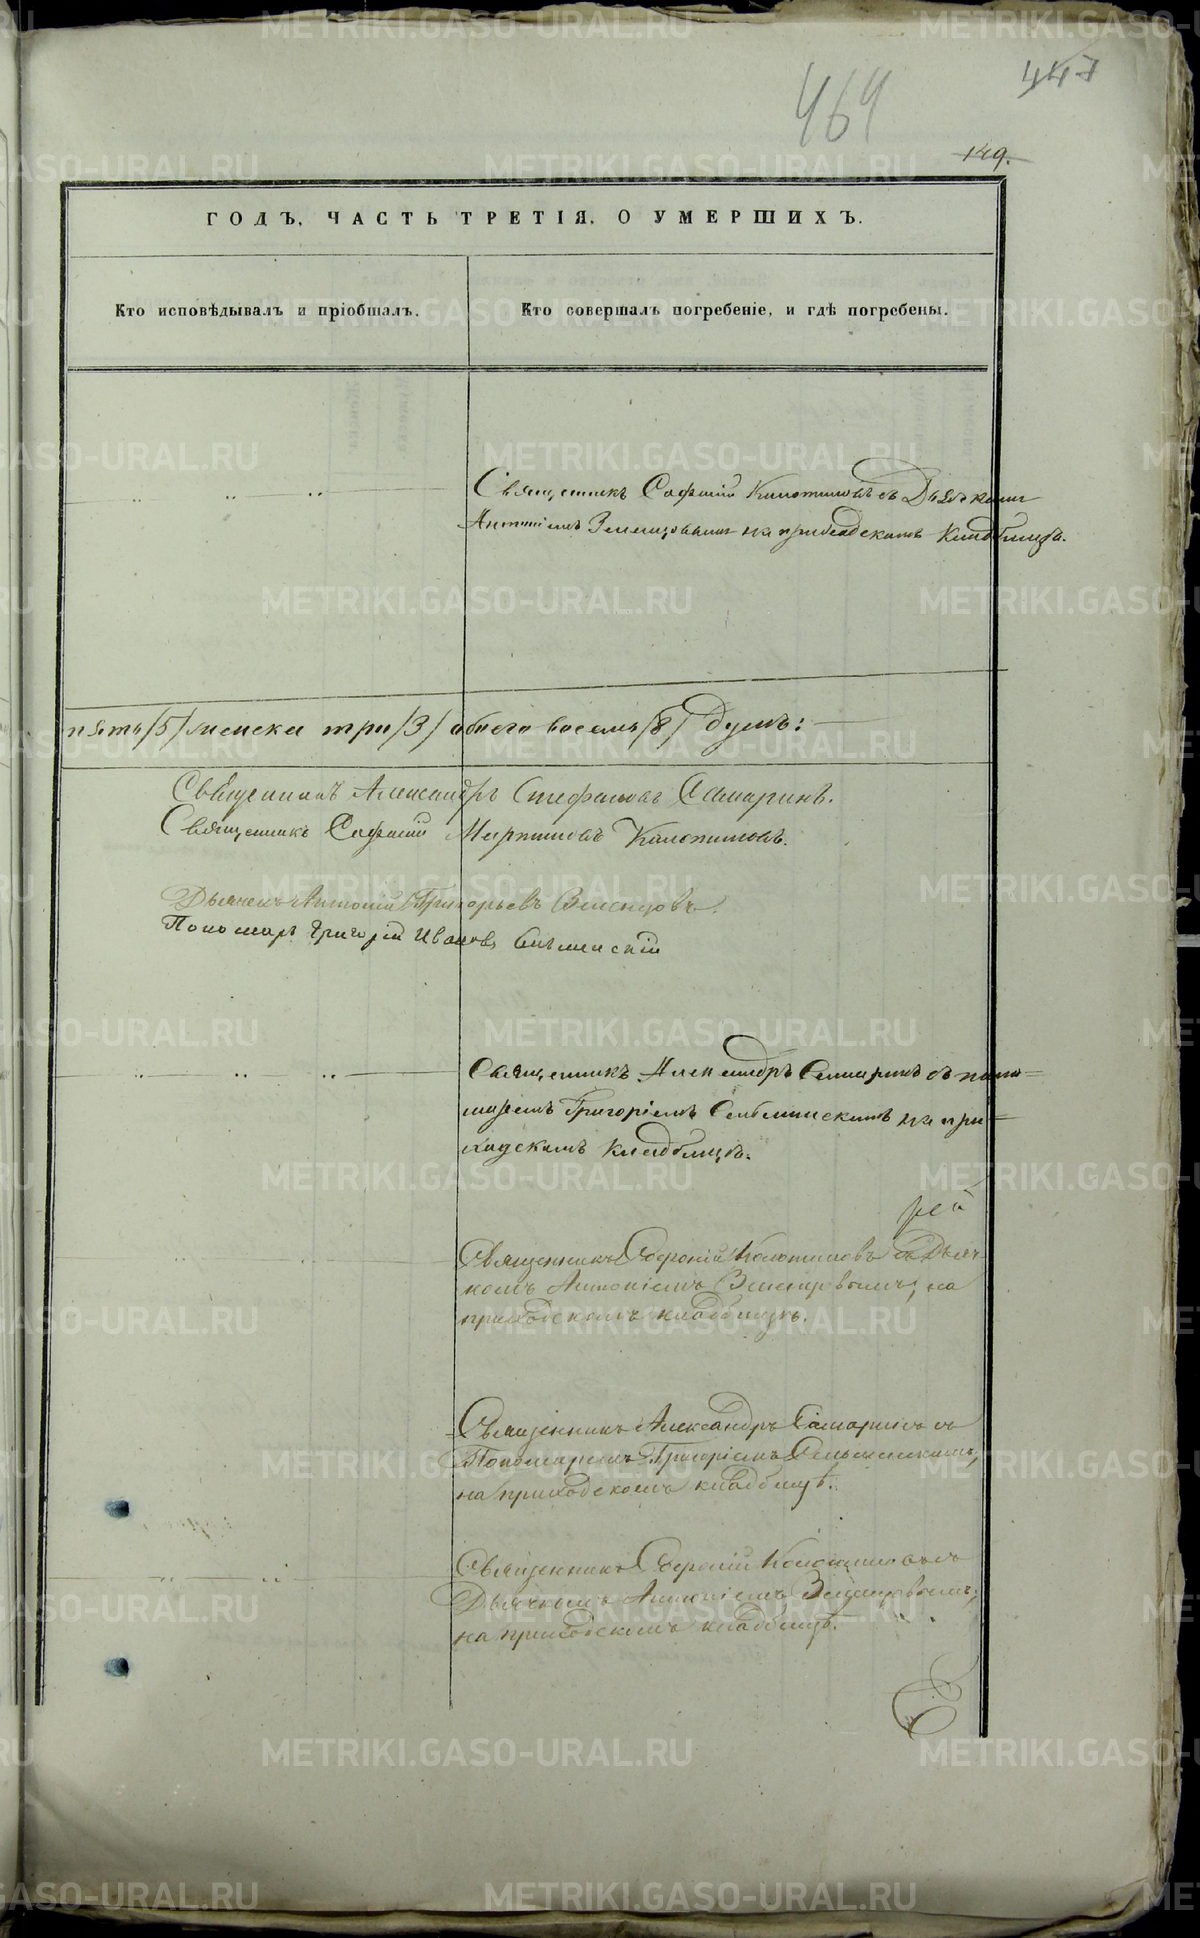 464
447
149.
ГОДЪ, ЧАСТЬ ТРЕТІЯ, О УМЕРШИХЪ.
Кто исповѣдывалъ и пріобщалъ.
Кто совершалъ погребеніе, и гдѣ погребены.
Священникъ Софоній Калотиловъ съ Дьячкомъ
Антоніемъ Земляцовымъ на приходскомъ кладбищѣ.
пять /5/ женска три /3/ обоего восемь /8/ душъ:
Священникъ Александръ Стефановъ Самаринъ.
Священникъ Софоній Мартиновъ Калотиловъ.
Дьячекъ Антоній Григорьевъ
Пономарь Григорій Ивановъ
Священникъ Александръ Самаринъ съ поно=
маремъ Григоріемъ на при=
ходскомъ кладбищѣ.
Священникъ Софоній Колотиловъ съ Дьяч-
комъ Антоніемъ на
приходскомъ кладбищѣ.
Священникъ Александръ Самаринъ съ
Пономаремъ Григоріемъ
на приходскомъ кладбищѣ.
Священникъ Софоній Колотиловъ съ
Дьячкомъ Антоніемъ
на приходскомъ кладбищѣ.
METRIKI.GASO-URAL.RU